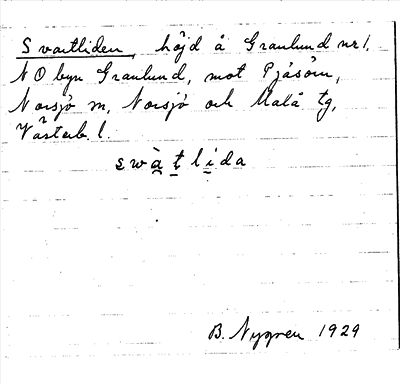 Svartliden, höjd å Granlund nr 1,
N O byn Granlund, mot Pjäsörn,
Norsjö sn, Norsjö och Malå tg,
Västerb. l.
swàtlida
B. Nygren 1929